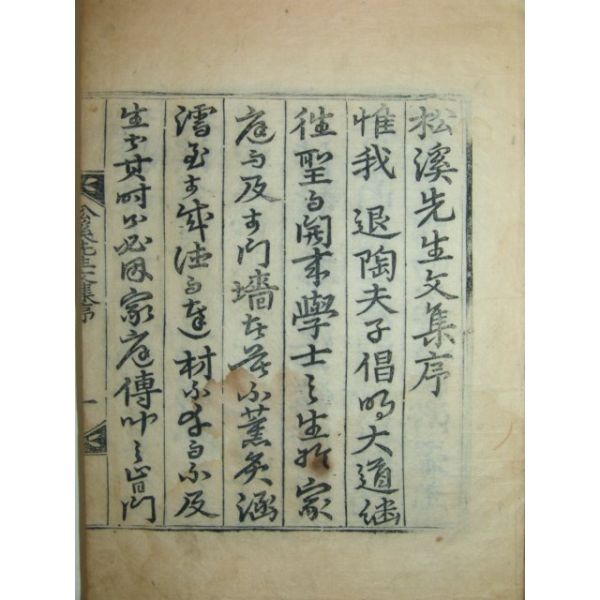 松溪先生文集序
惟我 退陶夫子倡明大道継
徃聖而開來學士之生於家
庭而及於門墻者莫不薰炙涵
濡至於成德而達材不幸而不及
生於其時則必因家庭傳之旨門
松溪先生文集序 一